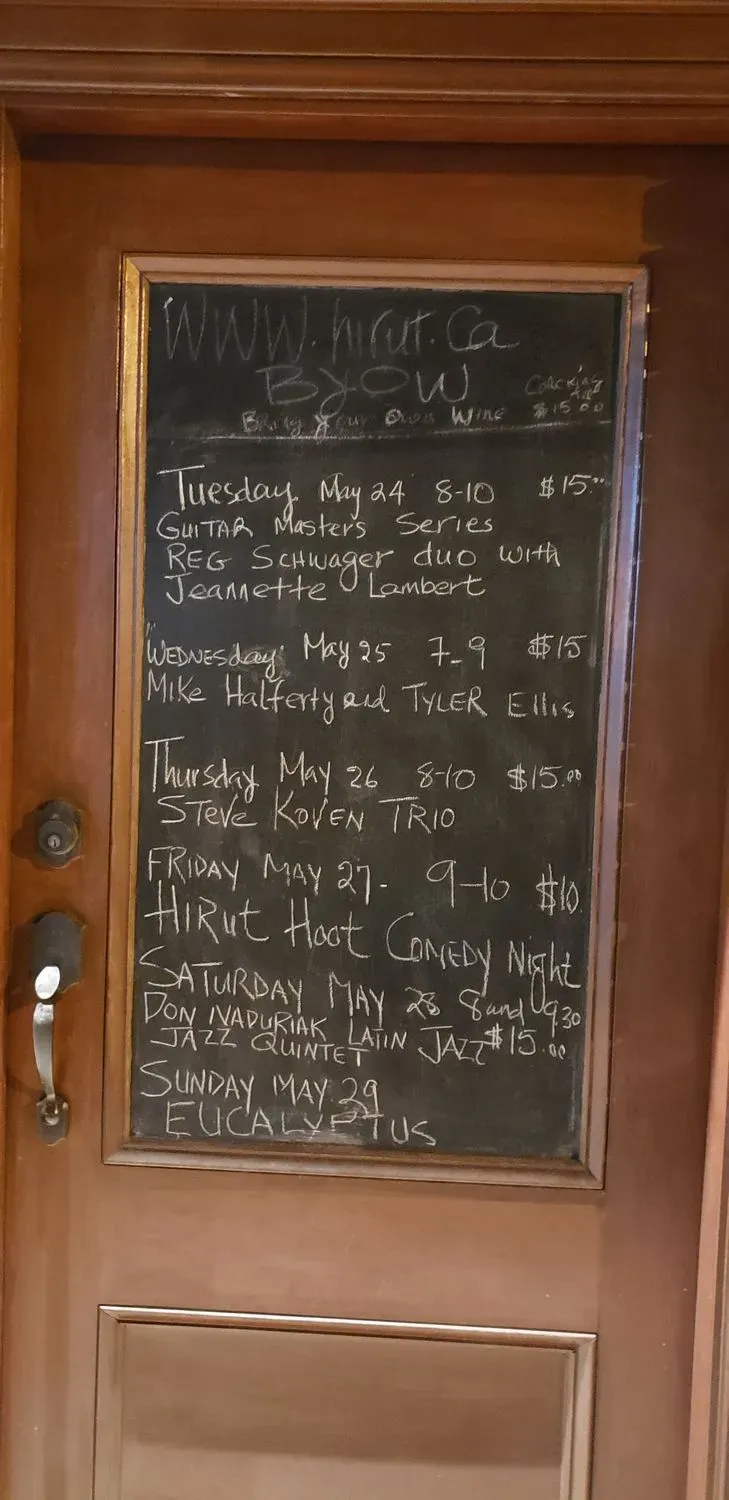 WWW.hirut.Ca
BYOW
Corcking
$15.00
Bring your Own Wine
Tuesday May 24 8-10 $15.00
GUITAR Masters Series
REG SCHWAGER duo with
Jeannette Lambert
"WEDNESday" May 25 7-9 $15
Mike Halferty and TYLER Ellis
Thursday May 26 8-10 $15.00
STEVE KOVEN TRIO
FRIDAY MAY 27- 9-10 $10
HIRUT Hoot COMEDY Night
SATURDAY MAY 28 8 and 9.30
DON NADURIAK LATIN JAZZ $15.00
JAZZ QUINTET
SUNDAY MAY 29
EUCALYPTUS